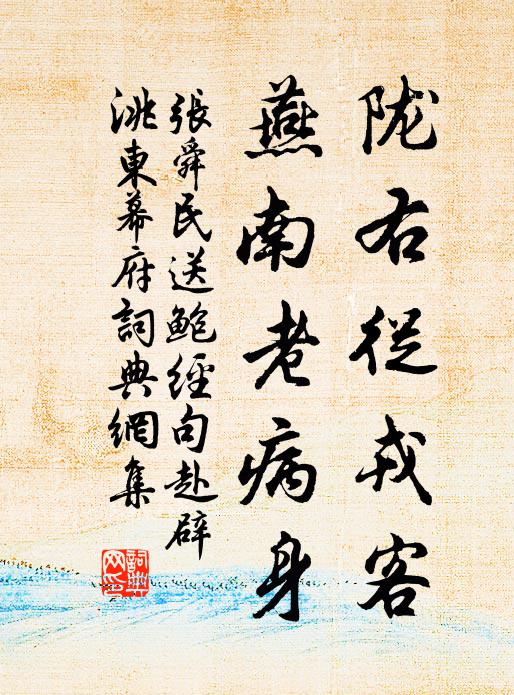 陇右從戎客
燕南老病身
張舜民送鮑經句赴辟
洮東幕府詞典網集